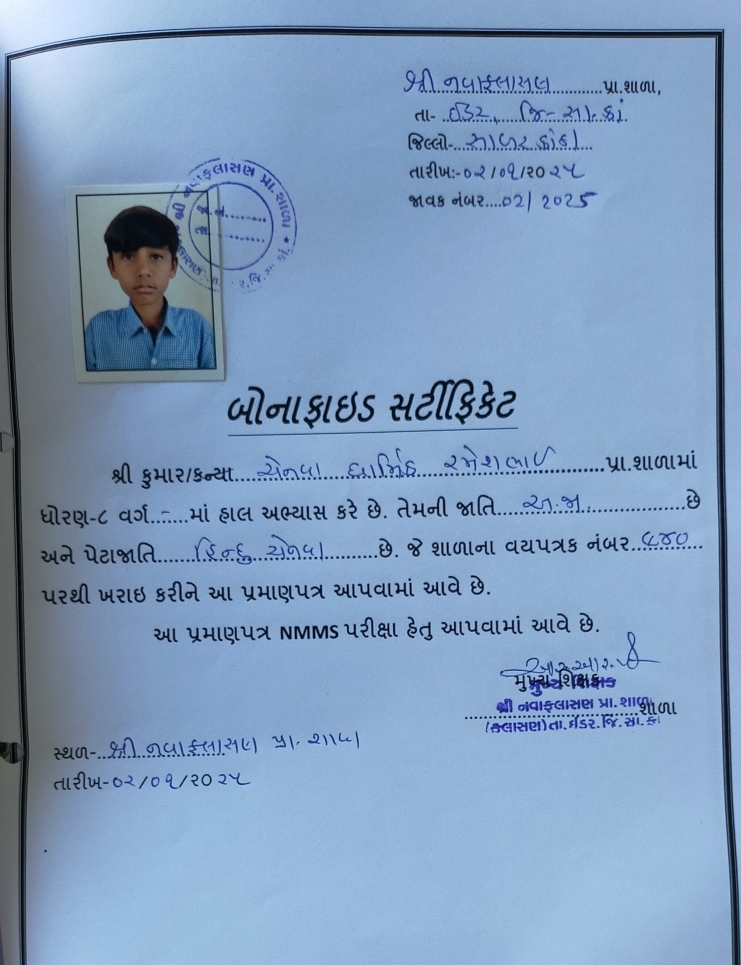 શ્રી નવાફલાસણ પ્રા.શાળા,
તા- ઈડર, જિ-સા.કાં.
જિલ્લો- સાબરકાંઠા
તારીખ:-૦૨/૦૧/૨૦૨૫
જાવક નંબર....02/2025
શ્રી નવાફલાસણ પ્રા.શાળા
બોનાફાઇડ સર્ટીફિકેટ
શ્રી કુમાર/કન્યા ચેનવા ધાર્મિક રમેશભાઈ પ્રા.શાળામાં
ધોરણ-૮ વર્ગ..-...માં હાલ અભ્યાસ કરે છે. તેમની જાતિ અ.જા. છે
અને પેટાજાતિ હિન્દુ ચેનવા છે. જે શાળાના વયપત્રક નંબર ૯૪૦
પરથી ખરાઇ કરીને આ પ્રમાણપત્ર આપવામાં આવે છે.
આ પ્રમાણપત્ર NMMS પરીક્ષા હેતુ આપવામાં આવે છે.
મુખ્ય શિક્ષક
મુખ્ય શિક્ષક
શ્રી નવાફલાસણ પ્રા.શાળા
શાળા
(ફલાસણ)તા.ઈડર.જિ.સા.કાં
સ્થળ- શ્રી નવાફલાસણ પ્રા.શાળા
તારીખ-૦૨/૦૧/૨૦૨૫